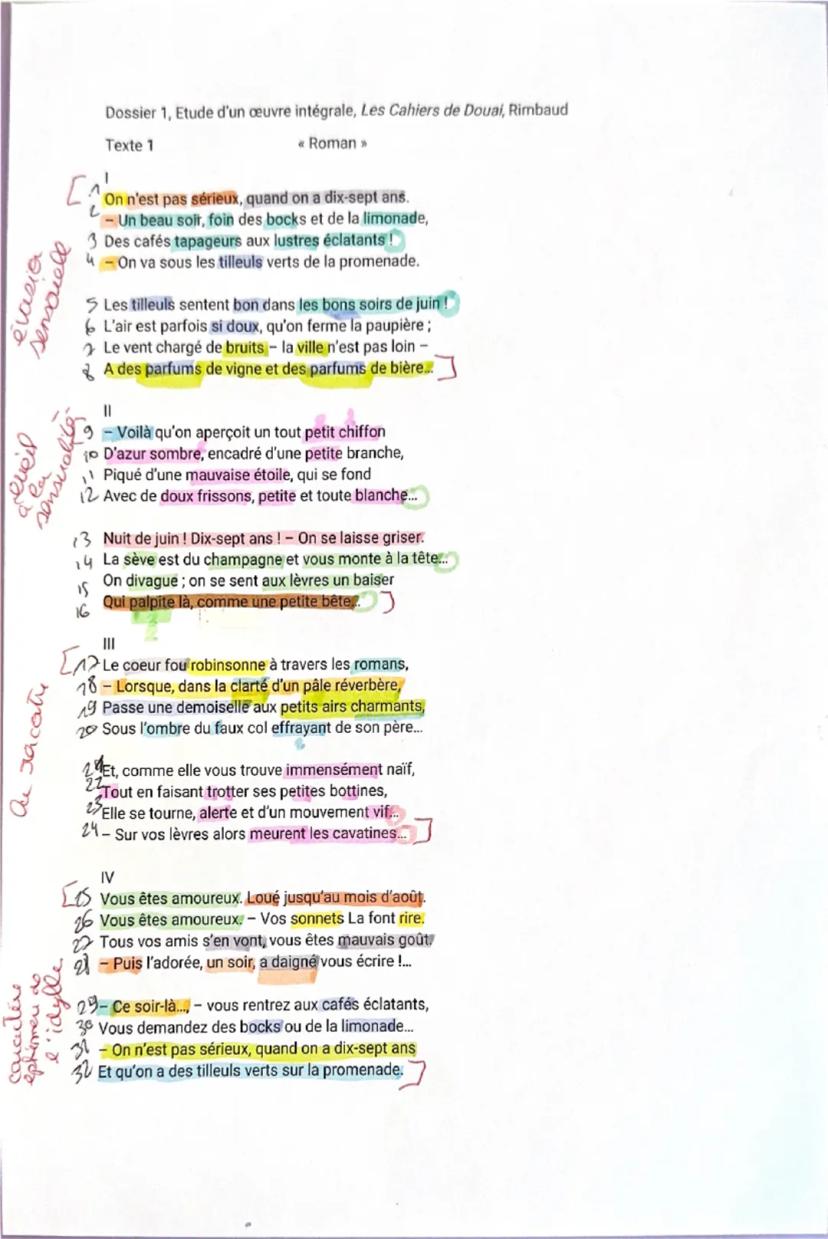 Dossier 1, Etude d'un œuvre intégrale, Les Cahiers de Douai, Rimbaud
Texte 1 « Roman »
I
1 On n'est pas sérieux, quand on a dix-sept ans.
2 – Un beau soir, foin des bocks et de la limonade,
3 Des cafés tapageurs aux lustres éclatants !
4 – On va sous les tilleuls verts de la promenade.
évasion
sensorielle
5 Les tilleuls sentent bon dans les bons soirs de juin !
6 L'air est parfois si doux, qu'on ferme la paupière ;
7 Le vent chargé de bruits – la ville n'est pas loin –
8 A des parfums de vigne et des parfums de bière...
II
9 – Voilà qu'on aperçoit un tout petit chiffon
10 D'azur sombre, encadré d'une petite branche,
11 Piqué d'une mauvaise étoile, qui se fond
12 Avec de doux frissons, petite et toute blanche...
à la
sensualité
13 Nuit de juin ! Dix-sept ans ! – On se laisse griser.
14 La sève est du champagne et vous monte à la tête...
15 On divague ; on se sent aux lèvres un baiser
16 Qui palpite là, comme une petite bête...
III
17 Le coeur fou robinsonne à travers les romans,
18 – Lorsque, dans la clarté d'un pâle réverbère,
19 Passe une demoiselle aux petits airs charmants,
20 Sous l'ombre du faux col effrayant de son père...
21 Et, comme elle vous trouve immensément naïf,
22 Tout en faisant trotter ses petites bottines,
23 Elle se tourne, alerte et d'un mouvement vif...
24 – Sur vos lèvres alors meurent les cavatines...
IV
25 Vous êtes amoureux. Loué jusqu'au mois d'août.
26 Vous êtes amoureux. – Vos sonnets La font rire.
27 Tous vos amis s'en vont, vous êtes mauvais goût.
28 – Puis l'adorée, un soir, a daigné vous écrire !...
caractère
éphémère de
l'idylle
29 – Ce soir-là..., – vous rentrez aux cafés éclatants,
30 Vous demandez des bocks ou de la limonade...
31 – On n'est pas sérieux, quand on a dix-sept ans
32 Et qu'on a des tilleuls verts sur la promenade.